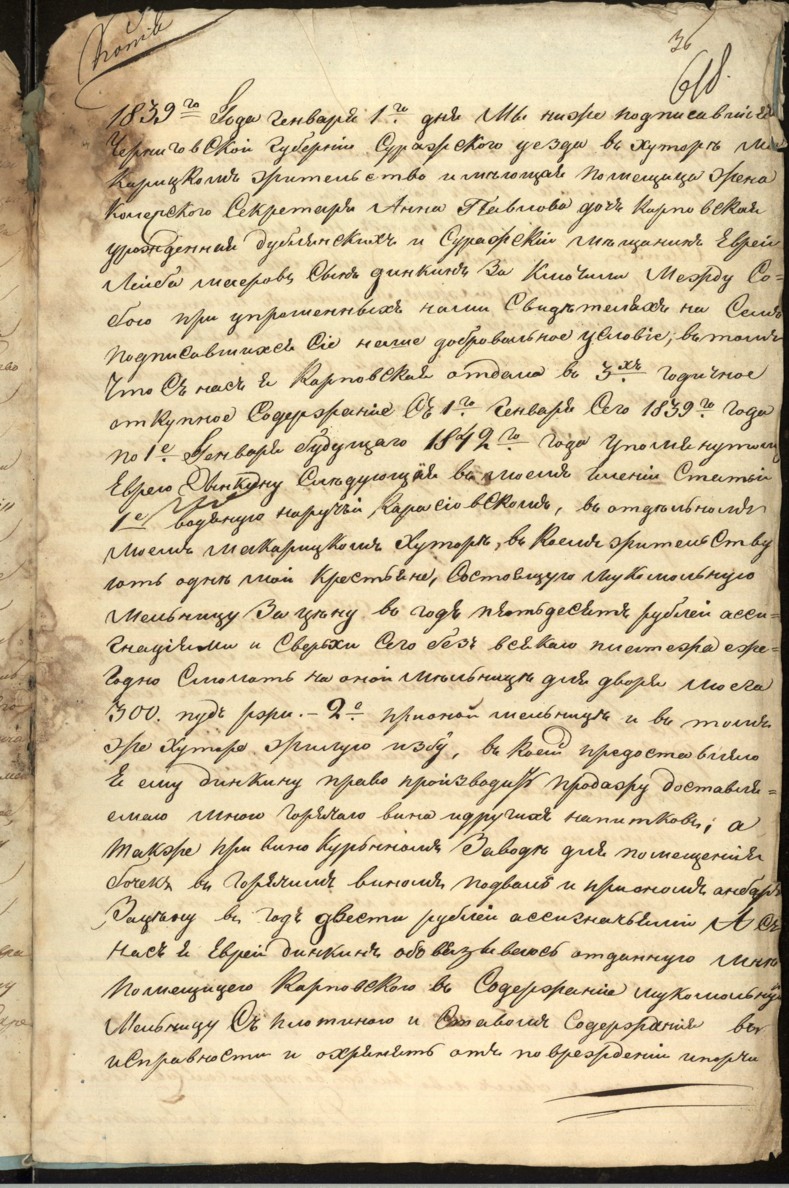 Копія
36
618.
1839го Года Генваря 1го дня Мы ниже подписавшіеся
Черниговской Губерніи Суражского уезда въ хуторѣ Ма
карицкомъ жительство имѣющая помещица жена
Колежского Секретаря Анна Павлова дочь Карповская
урожденная Дублянскихъ и Суражскій мѣщанинъ Еврей
Лейба Меерова Сынъ Динкинъ За Ключили Между Со=
бою при упрошенныхъ нами Свидѣтеляхъ на Семъ
подписавшихся Сіе наше добровольное условіе, въ томъ
Что Съ насъ я Карповская отдала въ 3хъ годичное
откупное Содержаніе Съ 1го Генваря Сего 1839го года
по 1е Генваря будущаго 1842го года упомянутому
Еврею Динкину Слѣдующія въ моемъ имѣніи Статьи
1е водяную наручьи Карасіовскомъ, въ отдѣльномъ
моемъ Макарицкомъ Хуторѣ, въ коемъ жительству
ютъ однѣ мои Крестьяне, Состоящую мукомольную
Мельницу За цѣну въ годъ пятьдесятъ рублей асси=
гнаціями и Сверхъ Сего безъ всякаго платежа еже=
годно Смолоть на оной мѣльницѣ для двора моего
300. пудъ ржи. – 2е при оной мельницѣ и въ томъ
же Хуторѣ жилую избу, въ коей предоставляю
Я ему Динкину право производить продажу доставля=
емаго мною горячаго вина и другихъ напитковъ; а
также при вино Курѣнномъ Заводѣ для помещенія
бочекъ въ горячимъ виномъ подвалъ и при ономъ анбаръ
Зацѣну въ годъ двести рублей ассигнаціями А Съ
насъ Я Еврей Динкинъ обовязываюсь отданную мнѣ
Помещицею Карповскою въ Содержаніе мукомольную
Мельницу Съ плотиною и Ставомъ Содержать въ
исправности и охранять отъ поврежденіи и порчи